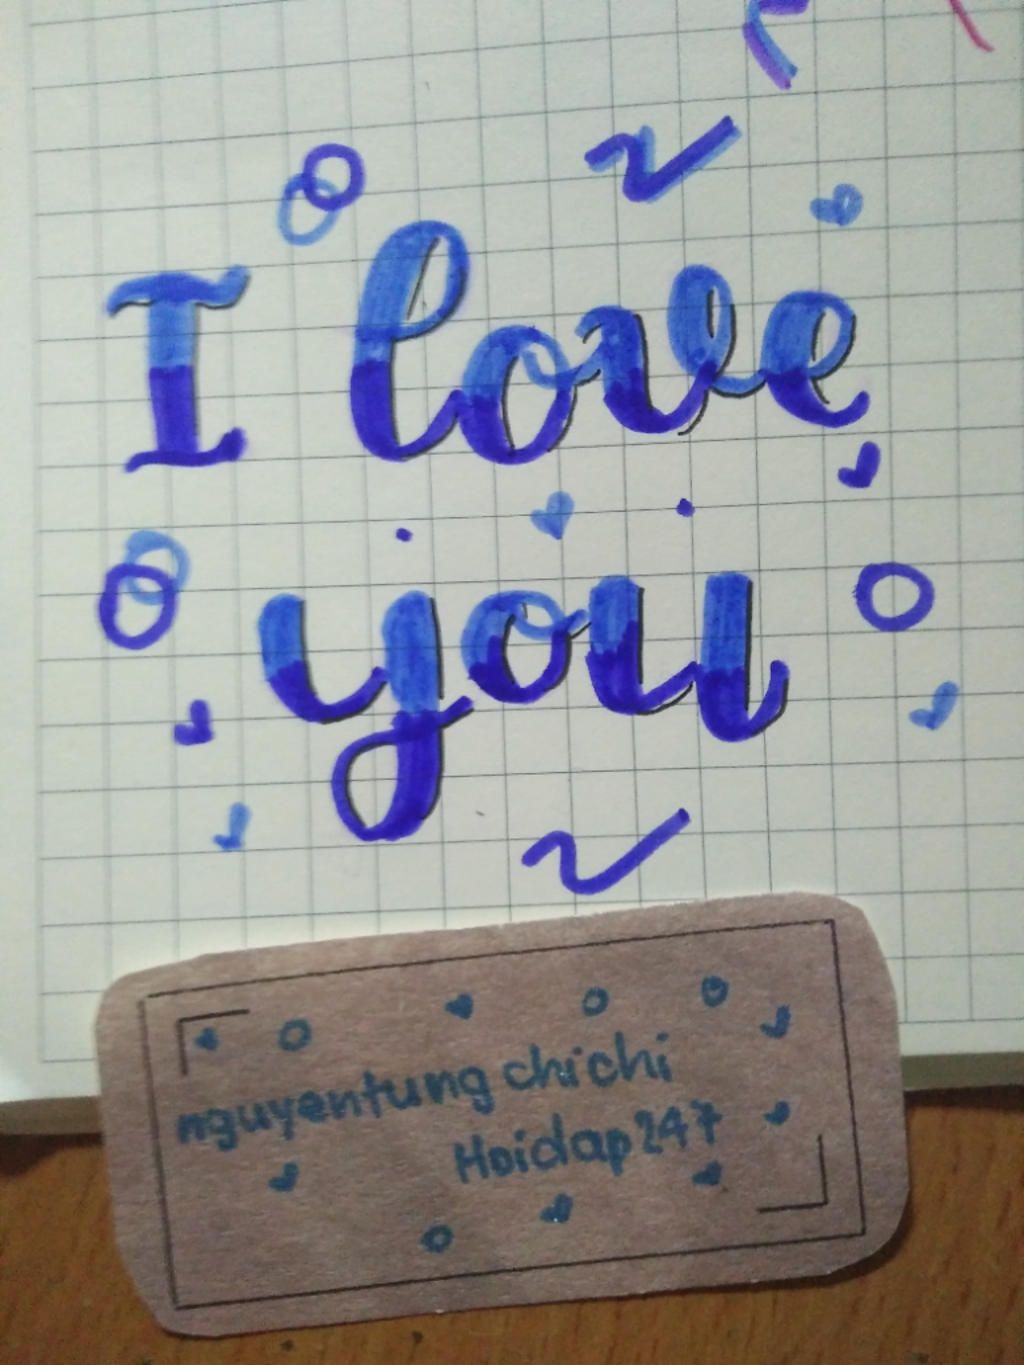 I love
you
nguyentung chichi
Hoidap247